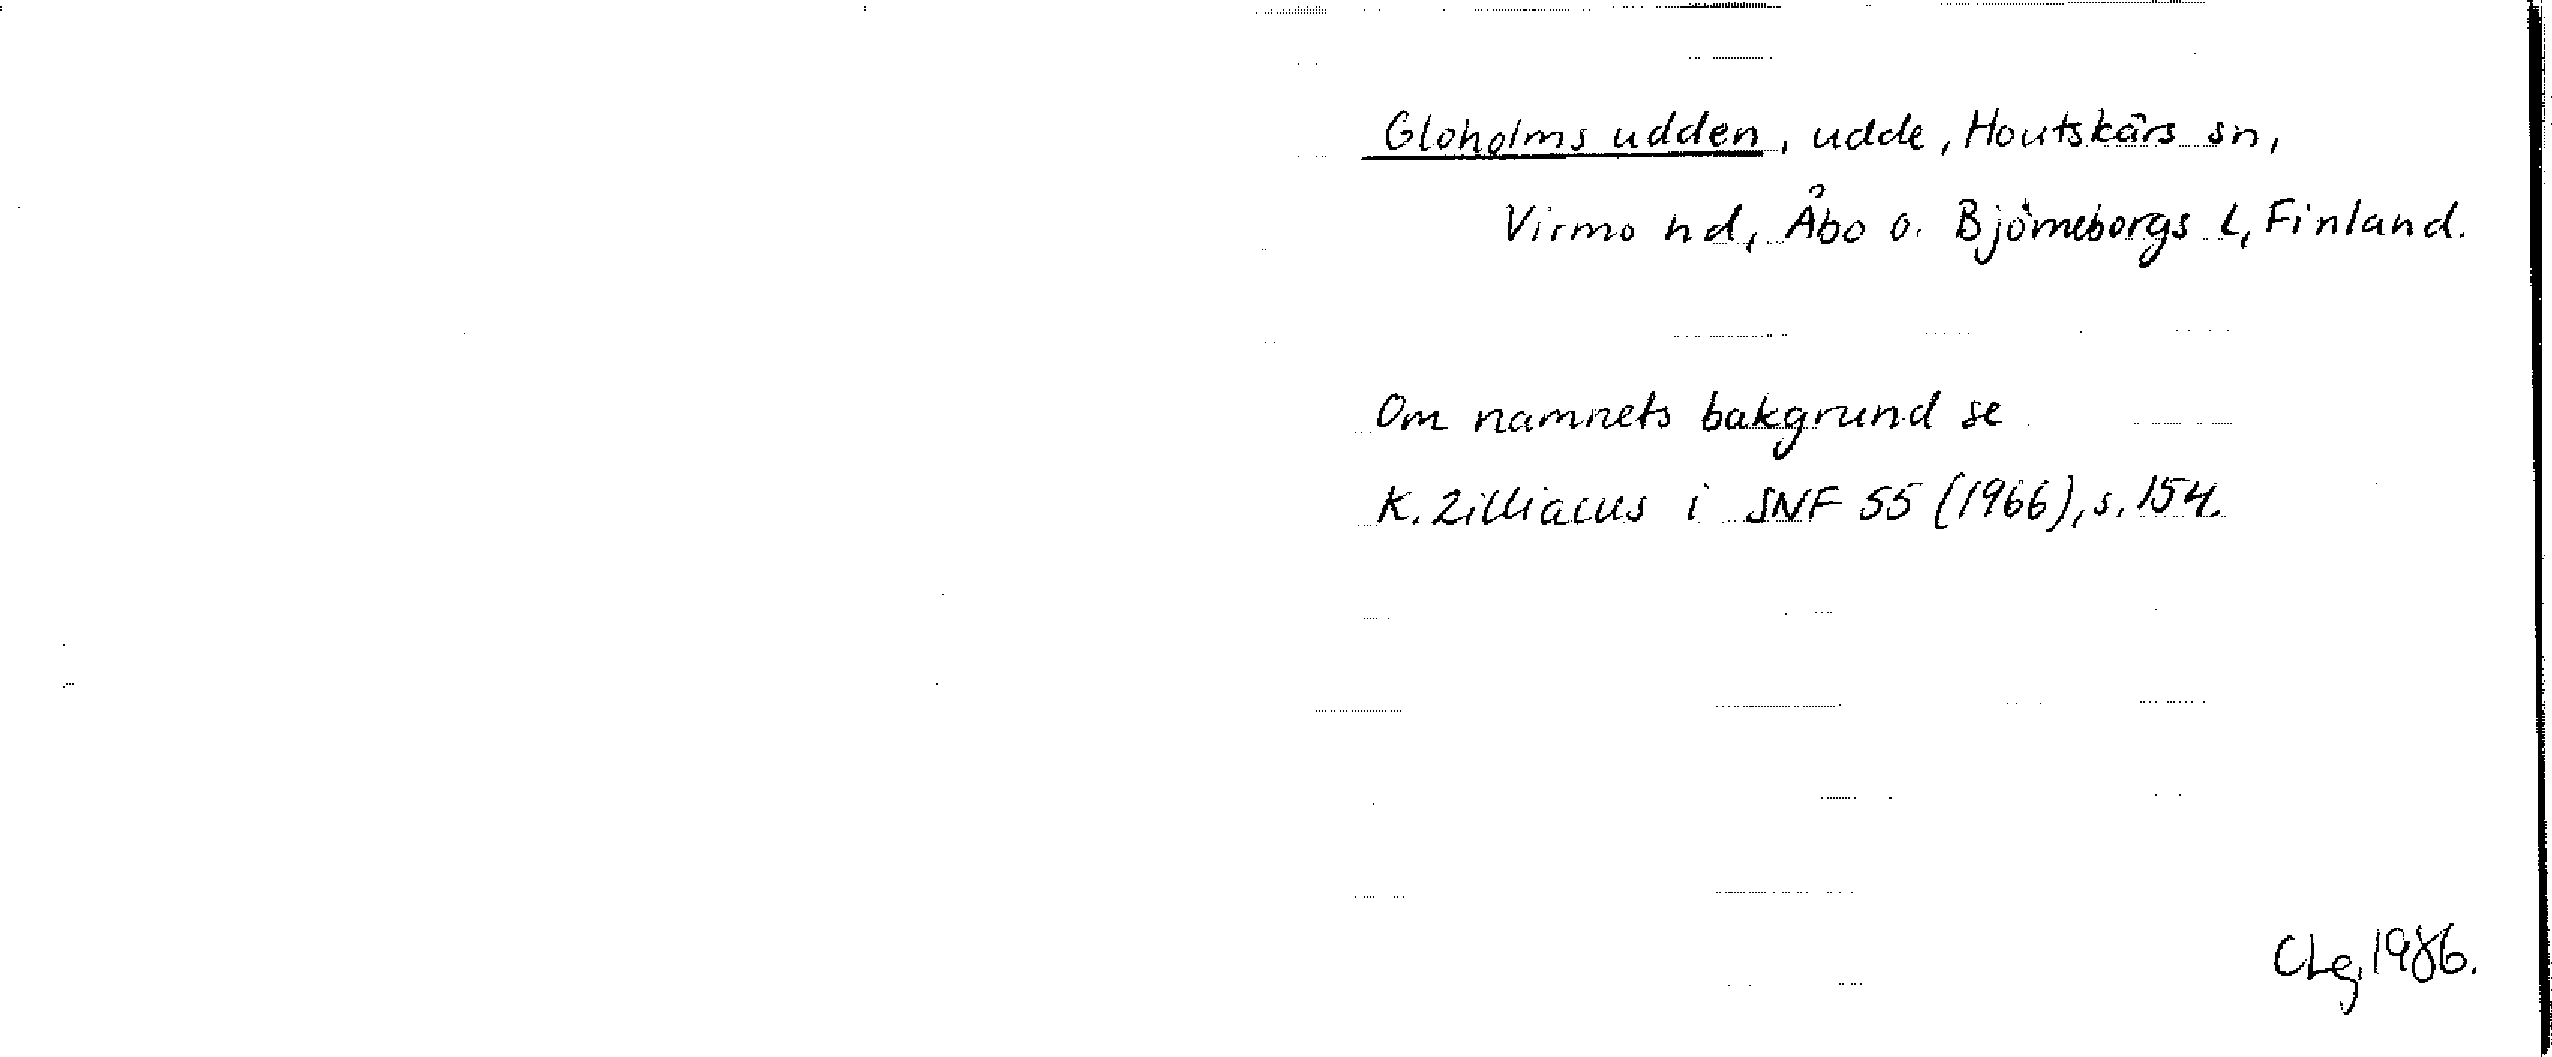 Gloholms udden, udde, Houtskärs sn,
Virmo hd, Åbo o. Björneborgs l, Finland.
Om namnets bakgrund se
K. Zilliacus i SNF 55 (1966), s. 154.
CLg, 1986.